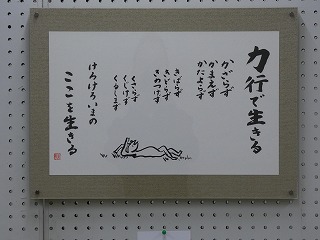 力行で生きる
かざらず
かまえず
かたよらず
きばらず
きどらず
くさらず
くじけず
くるしまず
けろけろいまの
ここを生きる